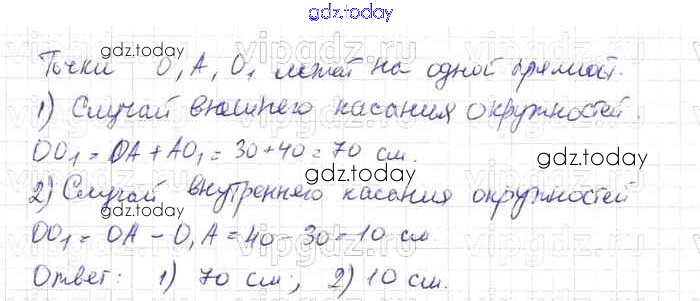 gdz.today
Точки O, A, O₁ лежат на одной прямой.
gdz.today
1) Случай внешнего касания окружностей.
OO₁ = OA + AO₁ = 30+40 = 70 см.
gdz.today
2) Случай внутреннего касания окружностей
gdz.today
OO₁ = OA − O₁A = 40 − 30 = 10 см
Ответ: 1) 70 см; 2) 10 см.
gdz.today